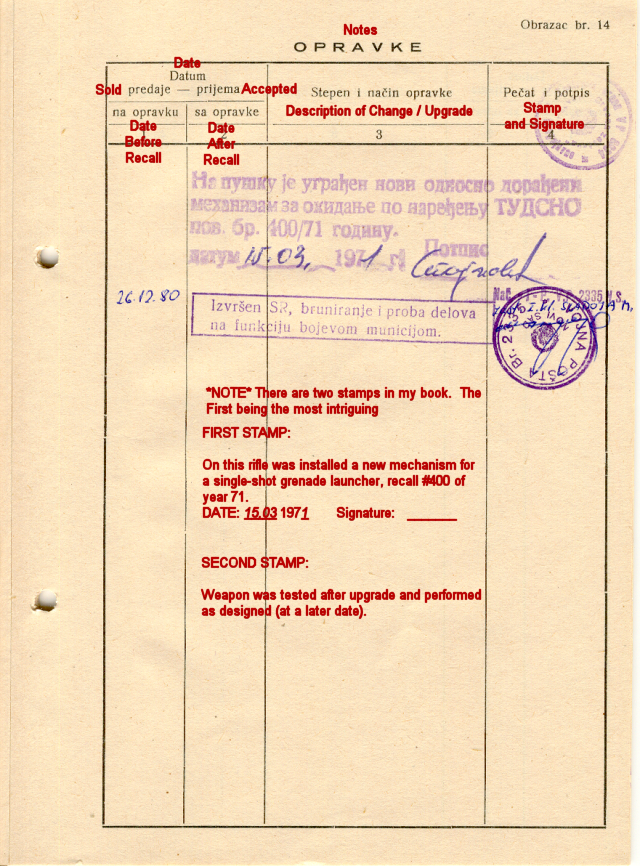 Obrazac br. 14
Notes
OPRAVKE
Date
Datum
Sold predaje — prijema Accepted
na opravku
sa opravke
Stepen i način opravke
Pečat i potpis
Date
Before
Recall
Date
After
Recall
Description of Change / Upgrade
Stamp
and Signature
3
4
На пушку је уграђен нови односно дорађени
механизам за окидање по наређењу ТУДСНО
пов. бр. 400/71 годину.
датум 15.03. 1971 г. Потпис
26.12.80
Izvršen SR, bruniranje i proba delova
na funkciju bojevom municijom.
2335
VOJNA POŠTA Br. 2335
*NOTE* There are two stamps in my book. The
First being the most intriguing
FIRST STAMP:
On this rifle was installed a new mechanism for
a single-shot grenade launcher, recall #400 of
year 71.
DATE: 15.03 1971 Signature: _______
SECOND STAMP:
Weapon was tested after upgrade and performed
as designed (at a later date).